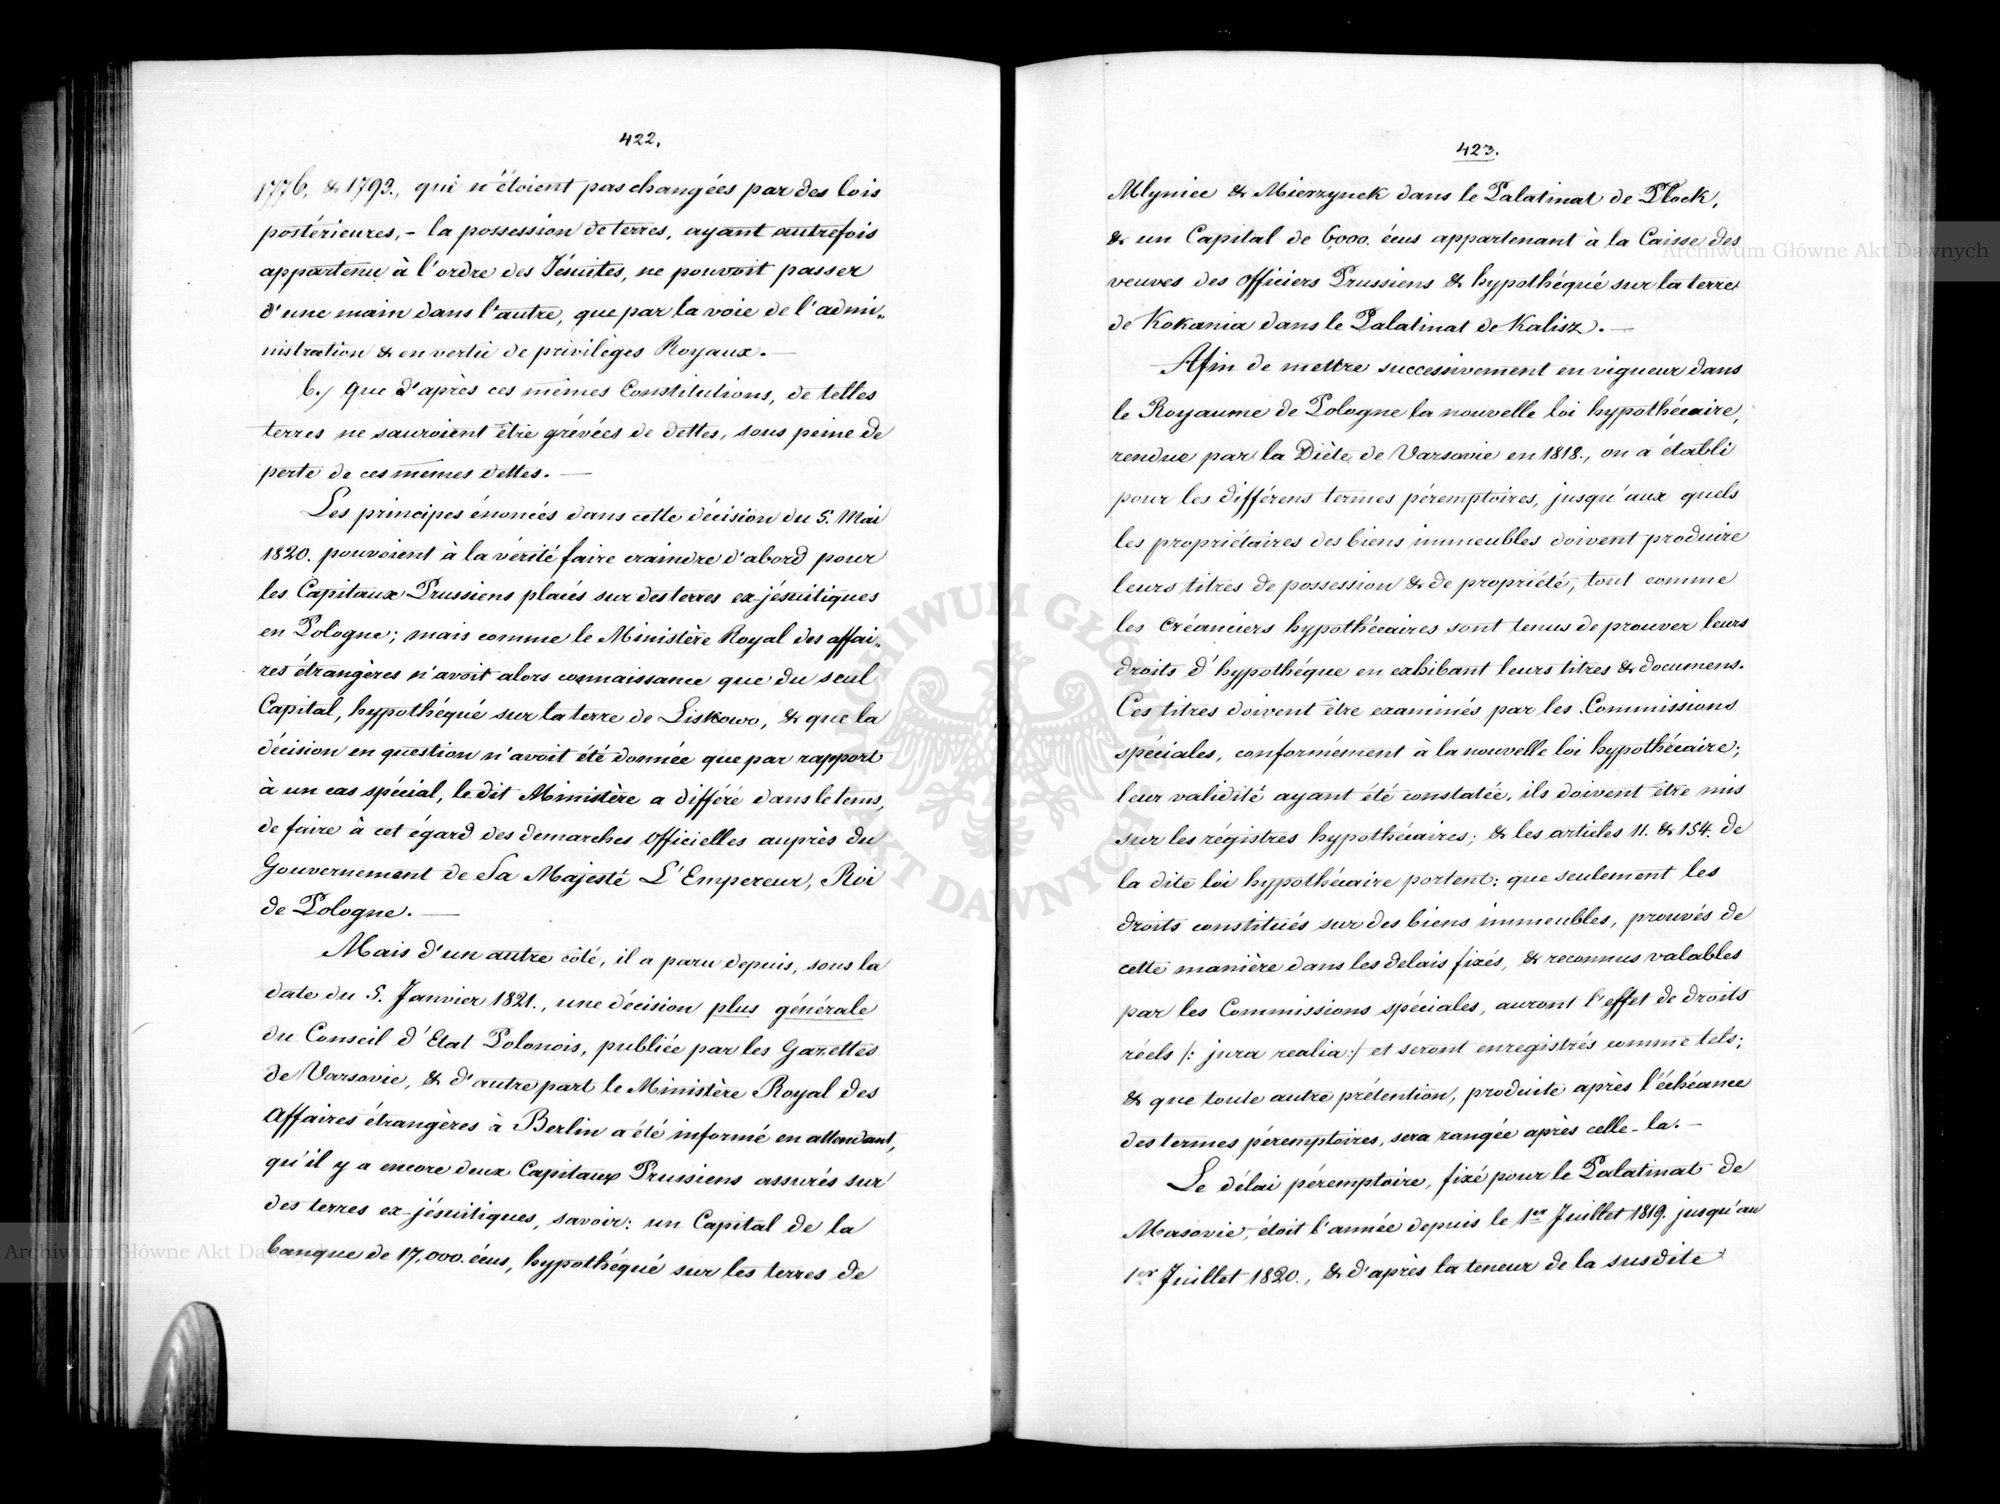 422.
1776, & 1793., qui n'étoient pas changées par des lois
postérieures, - la possession de terres, ayant autrefois
appartenu à l'ordre des Jésuites, ne pouvoit passer
d'une main dans l'autre, que par la voie de l'admi-
nistration & en vertu de privilèges Royaux. —
b.) que d'après ces mêmes Constitutions, de telles
terres ne sauroient être grévées de dettes, sous peine de
perte de ces mêmes dettes. —
Les principes énoncés dans cette décision du 5. Mai
1820. pouvoient à la vérité faire craindre d'abord pour
les Capitaux Prussiens placés sur des terres ex-jésuitiques
en Pologne; mais comme le Ministère Royal des affai-
res étrangères n'avoit alors connaissance que du seul
Capital, hypothéqué sur la terre de Liskowo, & que la
décision en question n'avoit été donnée que par rapport
à un cas spécial, le dit Ministère a différé dans le tems,
de faire à cet égard des demarches officielles auprès du
Gouvernement de Sa Majesté L'Empereur, Roi
de Pologne. —
Mais d'un autre côté, il a paru depuis, sous la
date du 5. Janvier 1821., une décision plus générale
du Conseil d'Etat Polonois, publiée par les Gazettes
de Varsovie, & d'autre part le Ministère Royal des
affaires étrangères à Berlin a été informé en attendant,
qu'il y a encore deux Capitaux Prussiens assurés sur
des terres ex-jésuitiques, savoir: un Capital de la
banque de 17,000. écus, hypothéqué sur les terres de
423.
Mlyniec & Mierzynek dans le Palatinat de Plock,
& un Capital de 6000. écus appartenant à la Caisse des
veuves des officiers Prussiens & hypothéqué sur la terre
de Kokania dans le Palatinat de Kalisz. —
Afin de mettre successivement en vigueur dans
le Royaume de Pologne la nouvelle loi hypothécaire,
rendue par la Diète de Varsovie en 1818., on a établi
pour les différens termes péremptoires, jusqu'aux quels
les propriétaires des biens immeubles doivent produire
leurs titres de possession & de propriété, tout comme
les créanciers hypothécaires sont tenus de prouver leurs
droits d'hypothéque en exhibant leurs titres & documens.
Ces titres doivent être examinés par les Commissions
spéciales, conformément à la nouvelle loi hypothécaire;
leur validité ayant été constatée, ils doivent être mis
sur les régistres hypothécaires; & les articles 11. & 154. de
la dite loi hypothécaire portent: que seulement les
droits constitués sur des biens immeubles, prouvés de
cette manière dans les delais fixés, & reconnus valables
par les Commissions spéciales, auront l'effet de droits
réels /: jura realia:/ et seront enregistrés comme tels;
& que toute autre prétention, produite après l'échéance
des termes péremptoires, sera rangée après celle-la. —
Le délai péremptoire, fixé pour le Palatinat de
Masovie, étoit l'année depuis le 1er Juillet 1819. jusqu'au
1er Juillet 1820., & d'après la teneur de la susdite
Archiwum Główne Akt Dawnych
Archiwum Główne Akt Dawnych
ARCHIWUM GŁÓWNE AKT DAWNYCH